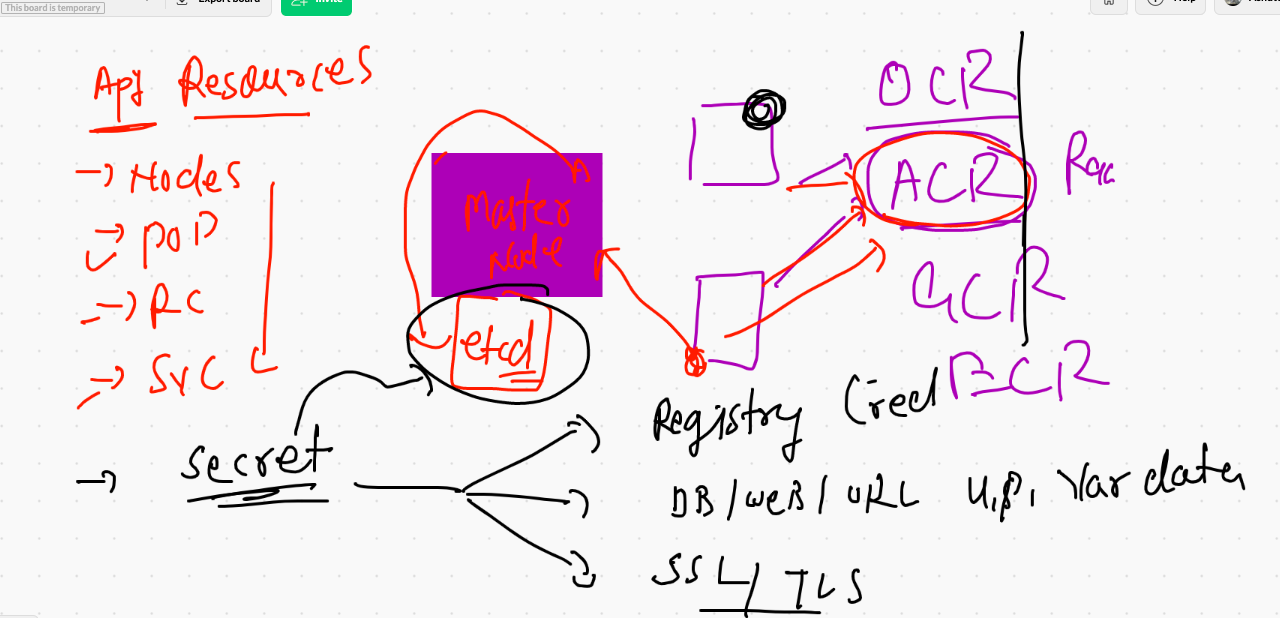 This board is temporary
Export board
Invite
Help
Api Resources
→ Nodes
→ POD
→ RC
→ SVC
→ secret
Master
Node
etcd
OCR
ACR
GCR
ECR
Registry Cred
DB/WEB/URL U,P, Var data
SSL/TLS